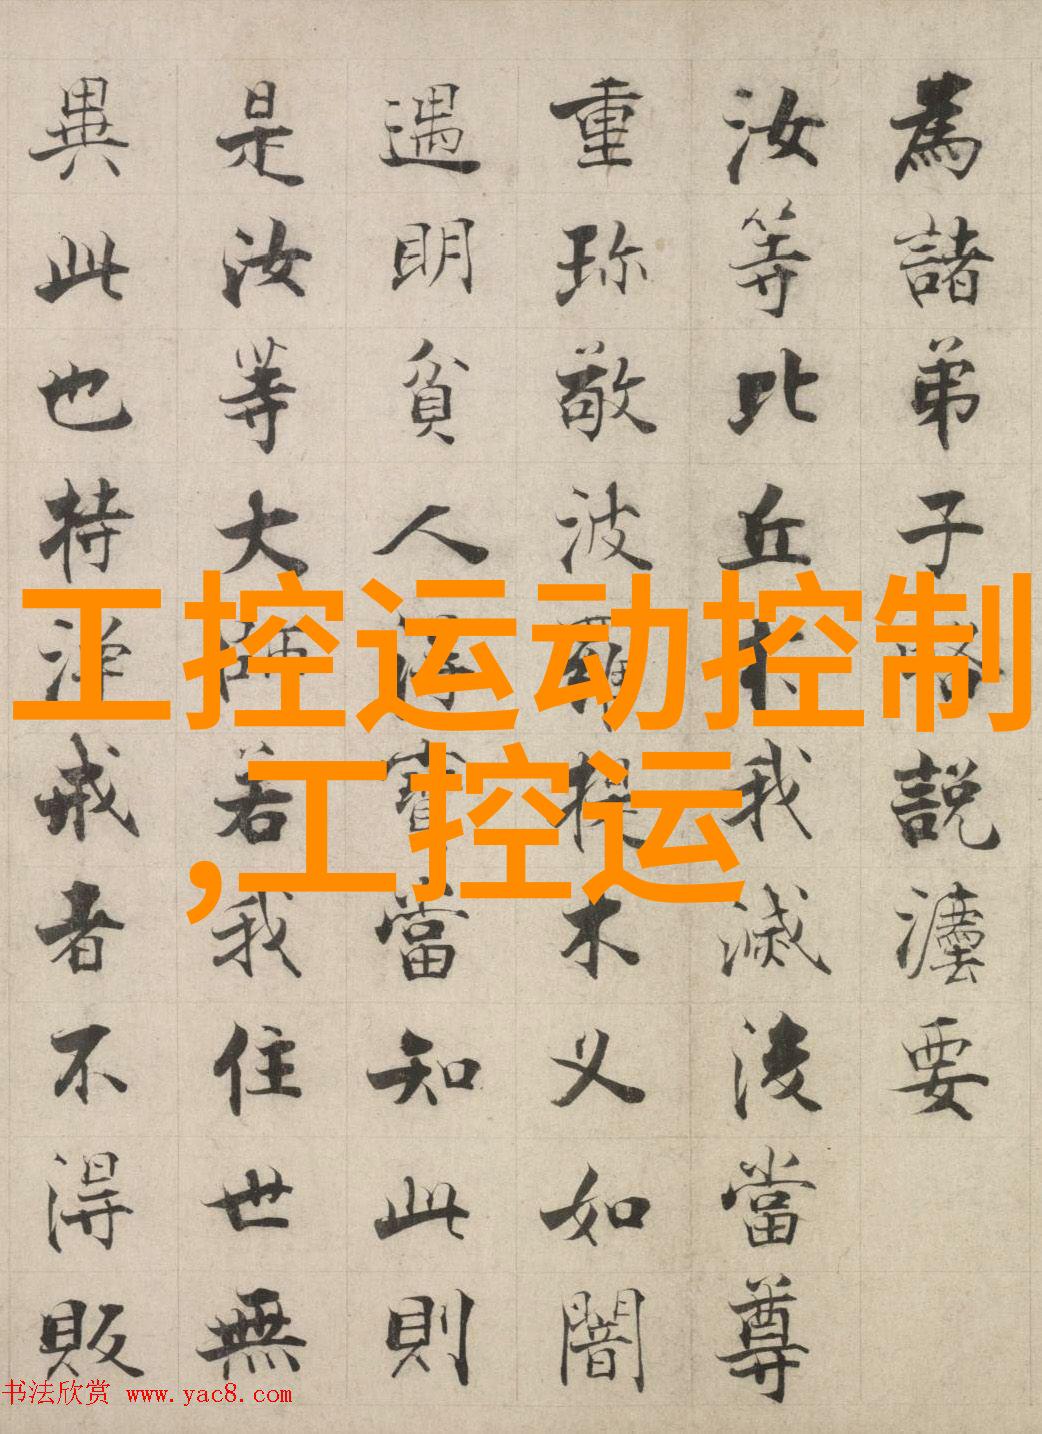 為諸弟子略說法要
汝等比丘於我滅後當尊
重珎敬波羅提木叉如闇
遇明貧人得寶當知此則
是汝等大師若我住世無
異此也持淨戒者不得販
工控运动控制
,工控运
书法欣赏 www.yac8.com